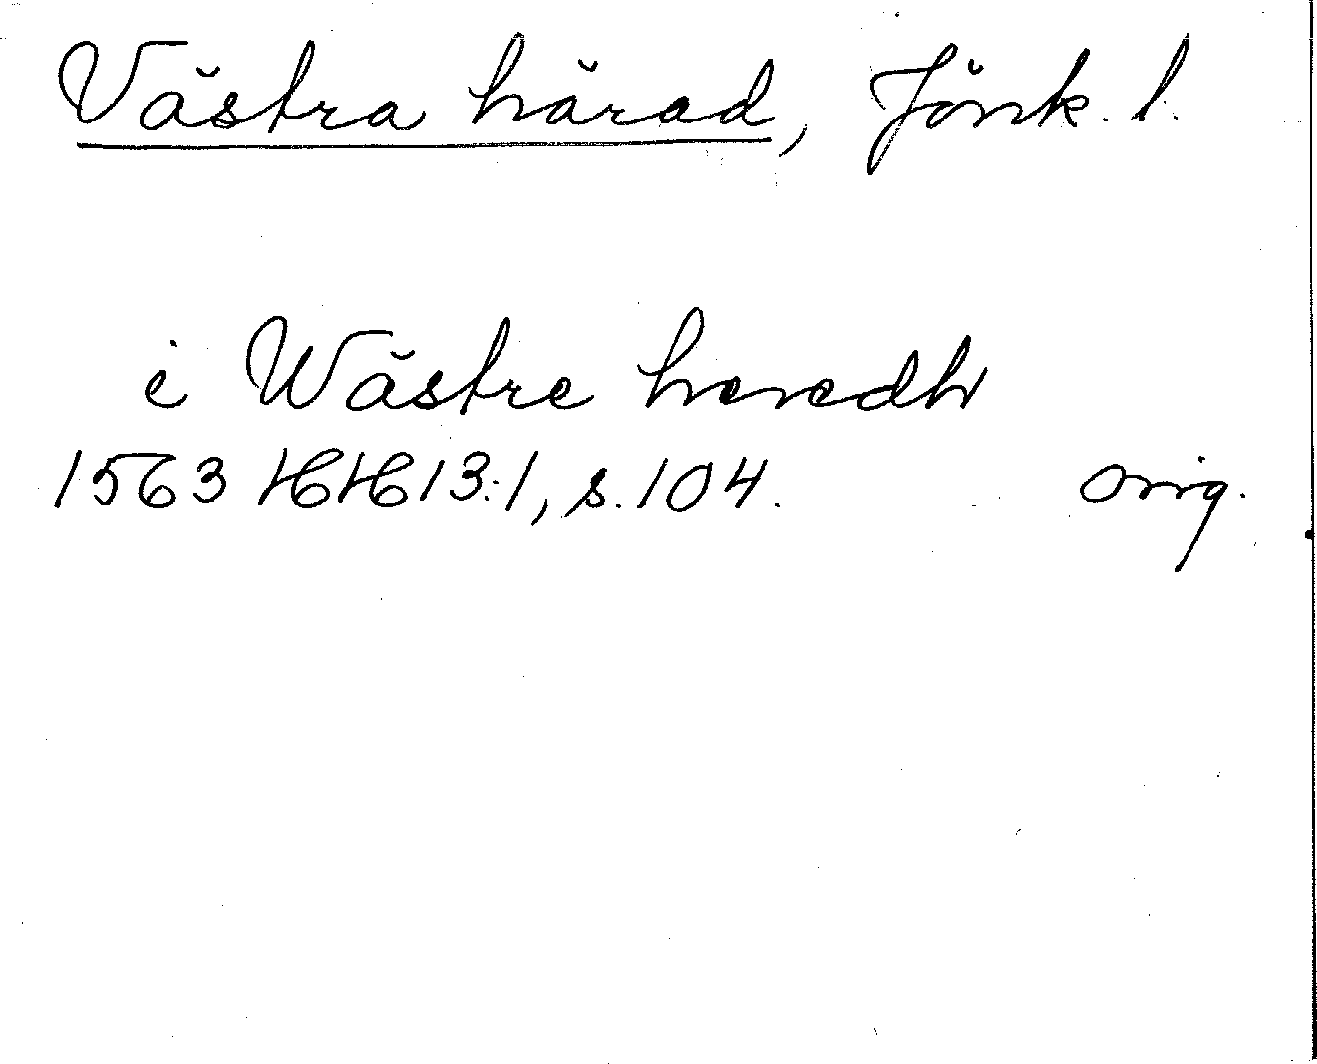 Västra härad, Jönk. l.
i Wästre heredh
1563 HH 13:1, s. 104. orig.